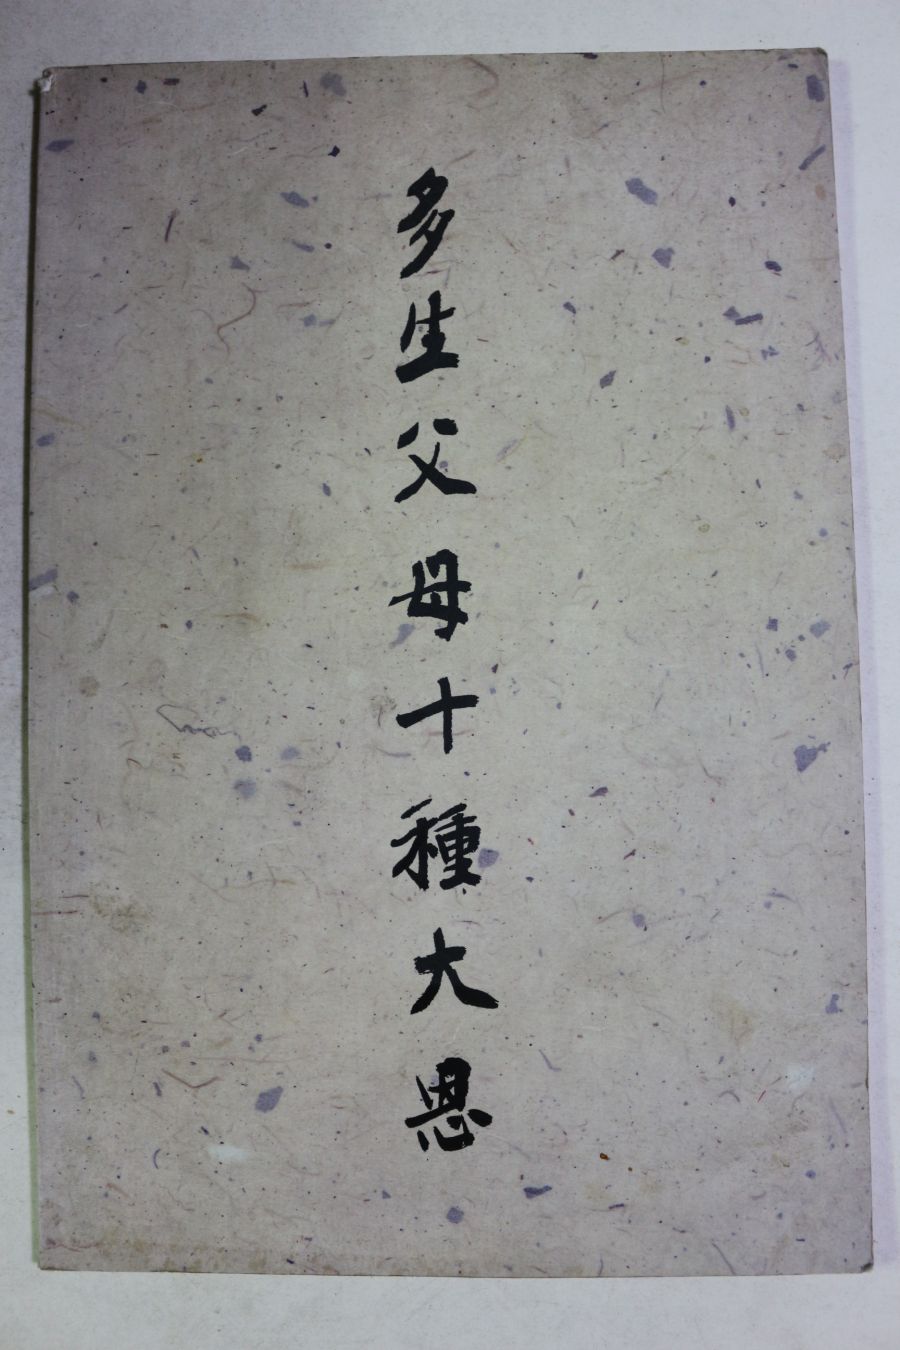 多生父母十種大恩